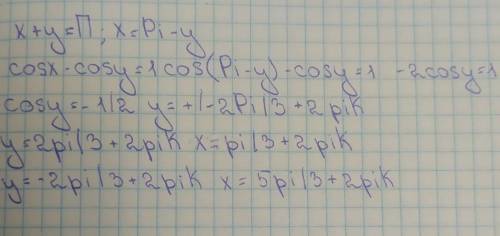 x+y=П; x=Pi-y
cosx-cosy=1 cos(Pi-y)-cosy=1 -2cosy=1
cosy=-1/2 y=+/-2Pi/3+2piK
y=2pi/3+2piK x=pi/3+2piK
y=-2pi/3+2piK x=5pi/3+2piK